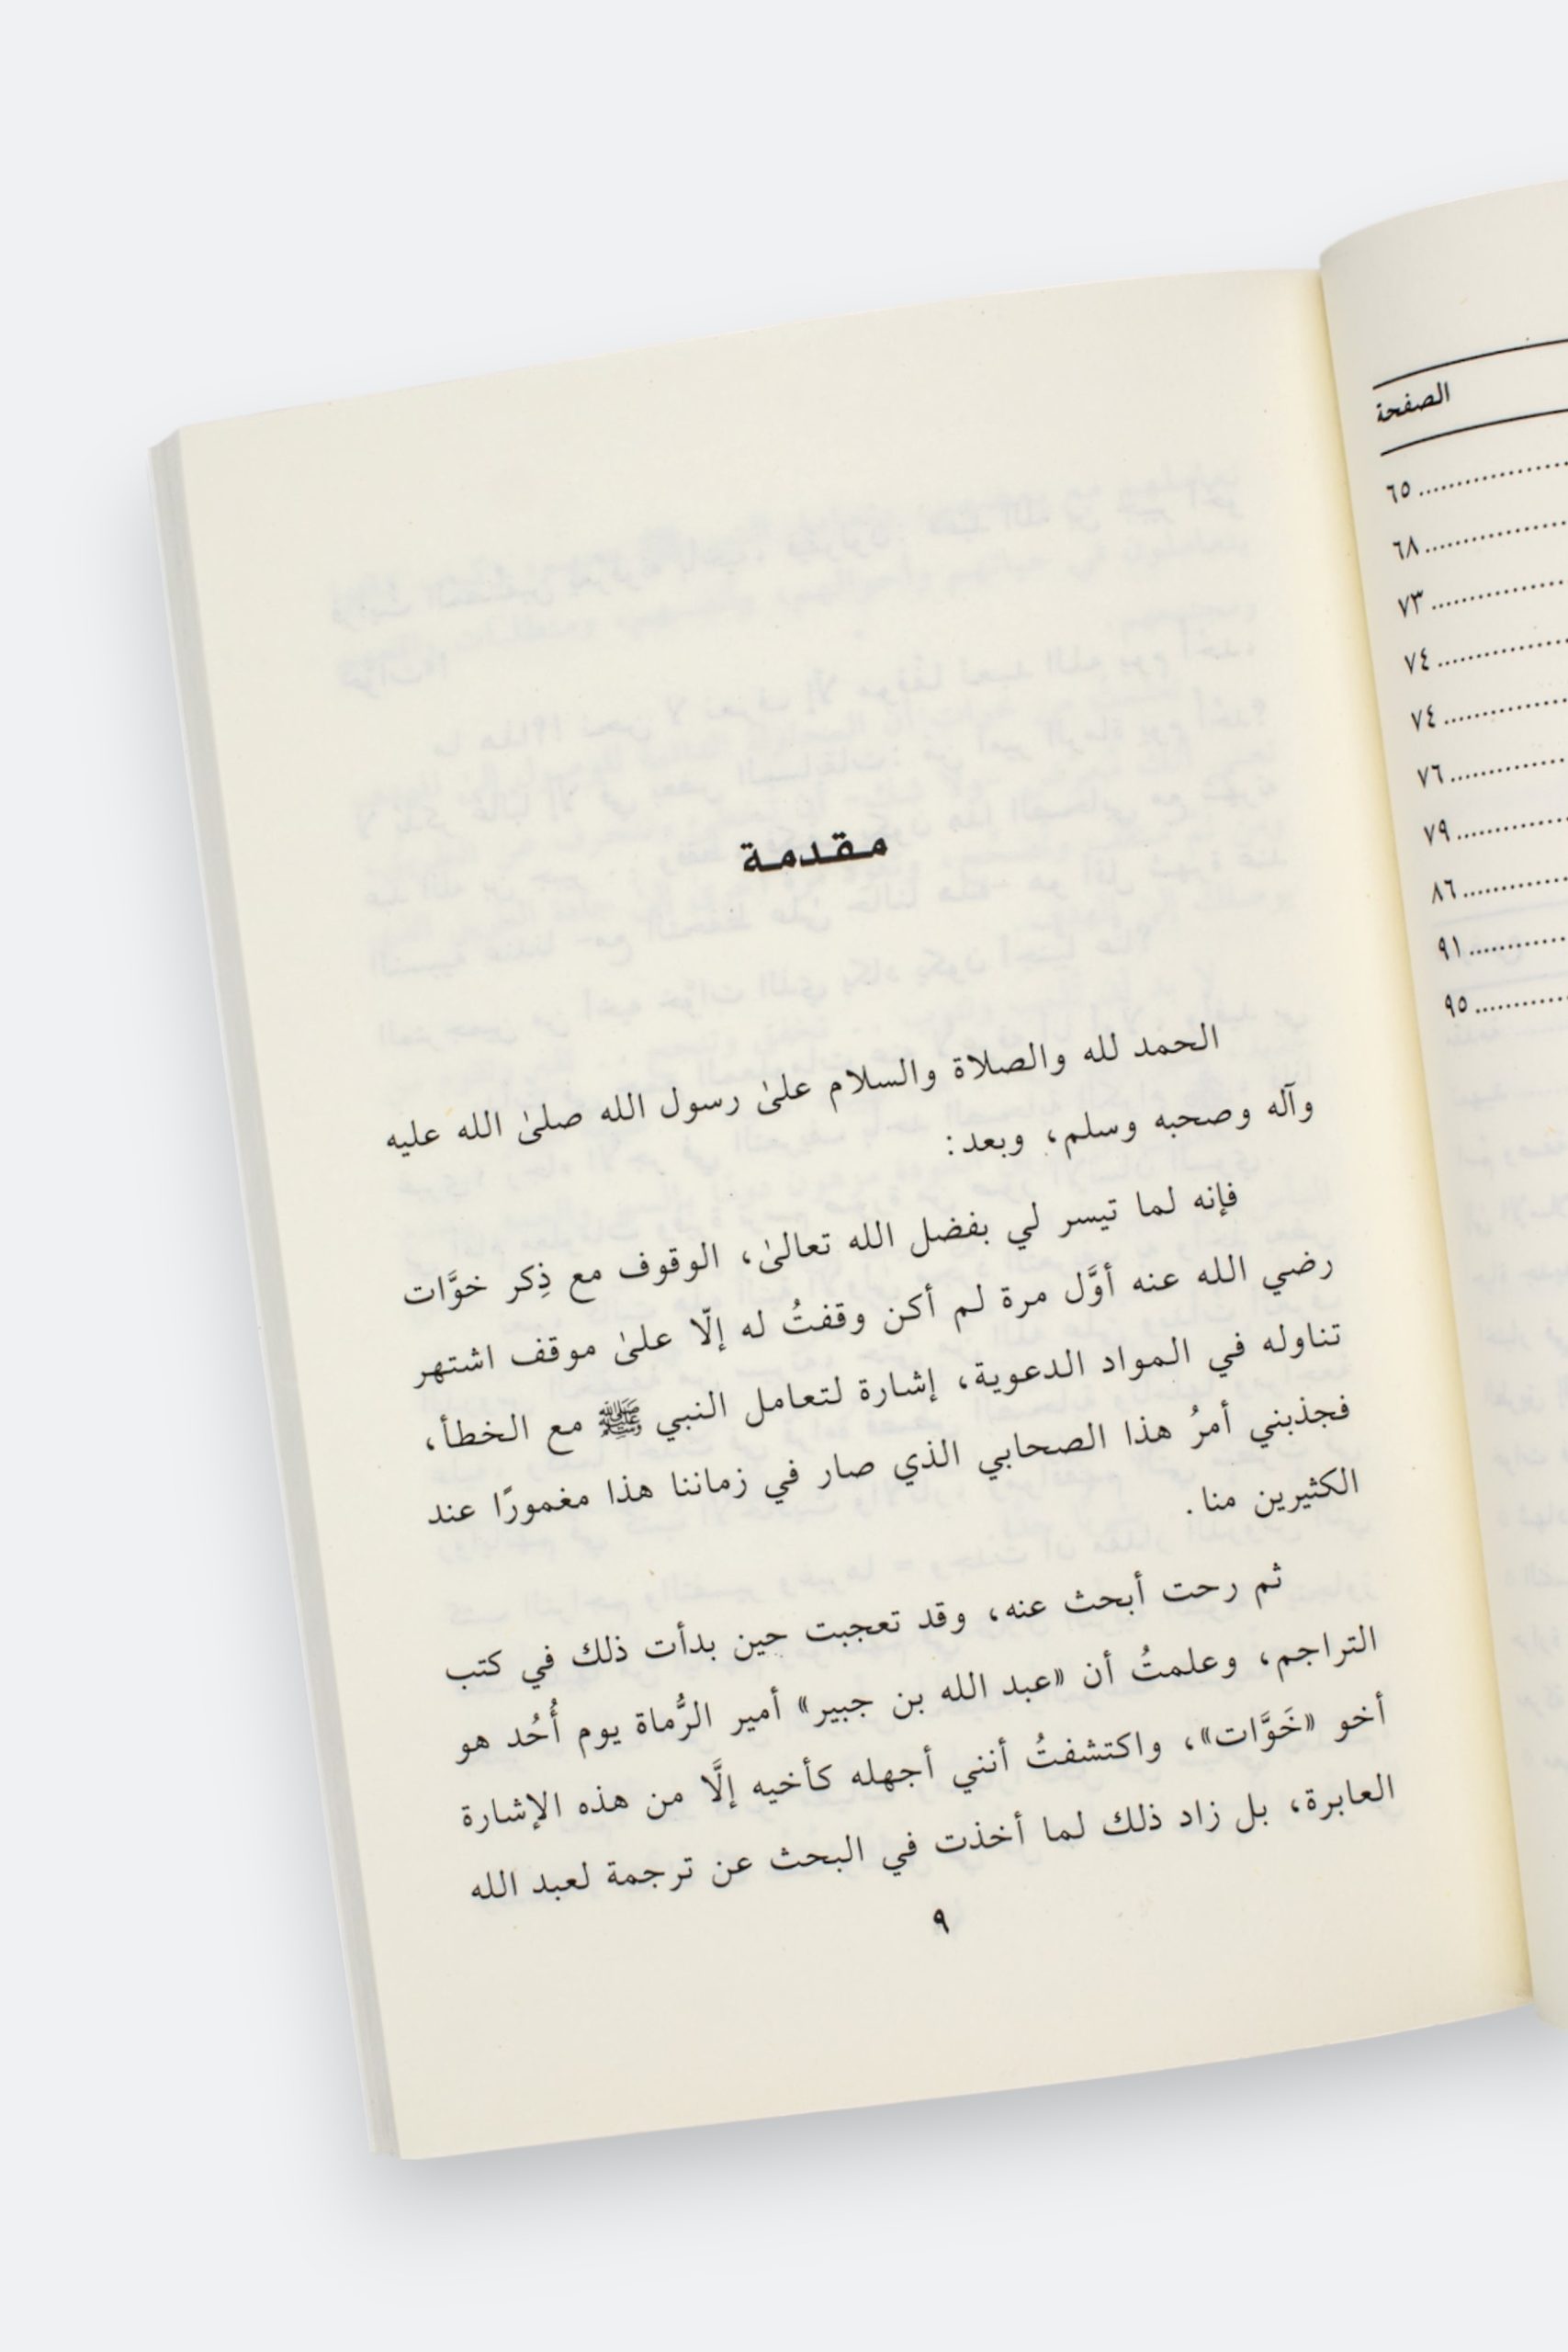 الصفحة
٦٥
٦٨
٧٣
٧٤
٧٤
٧٦
٧٩
٨٦
٩١
٩٥
مقدمة
الحمد لله والصلاة والسلام علىٰ رسول الله صلىٰ الله عليه
وآله وصحبه وسلم، وبعد:
فإنه لما تيسر لي بفضل الله تعالىٰ، الوقوف مع ذِكر خوَّات
رضي الله عنه أوَّل مرة لم أكن وقفتُ له إلّا علىٰ موقف اشتهر
تناوله في المواد الدعوية، إشارة لتعامل النبي ﷺ مع الخطأ،
فجذبني أمرُ هذا الصحابي الذي صار في زماننا هذا مغمورًا عند
الكثيرين منا.
ثم رحت أبحث عنه، وقد تعجبت حين بدأت ذلك في كتب
التراجم، وعلمتُ أن «عبد الله بن جبير» أمير الرُّماة يوم أُحُد هو
أخو «خَوَّات»، واكتشفتُ أنني أجهله كأخيه إلَّا من هذه الإشارة
العابرة، بل زاد ذلك لما أخذت في البحث عن ترجمة لعبد الله
٩